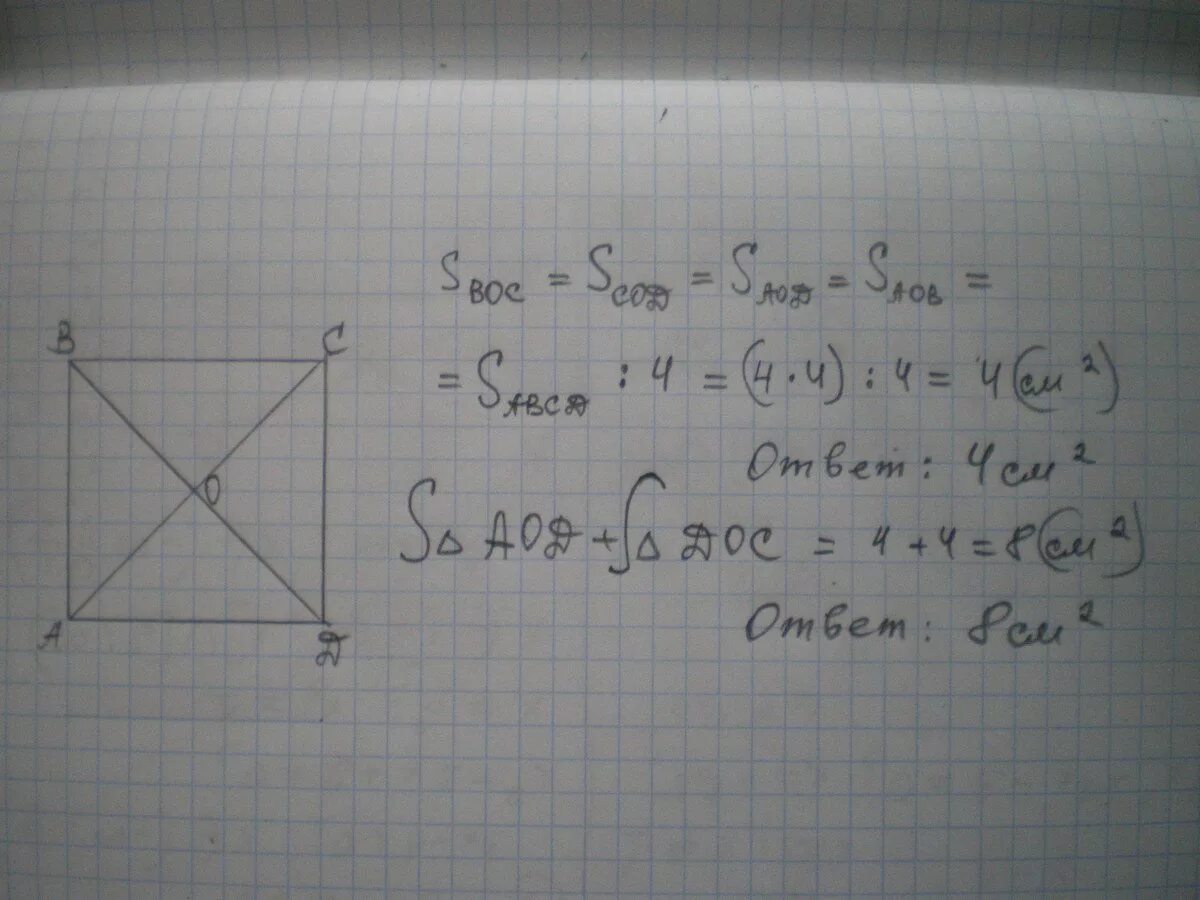 B C
O
A D
S BOC = S COD = S AOD = S AOB =
= S ABCD : 4 = (4 · 4) : 4 = 4 (см²)
Ответ: 4 см²
S△ AOD + S△ DOC = 4 + 4 = 8 (см²)
Ответ: 8 см²